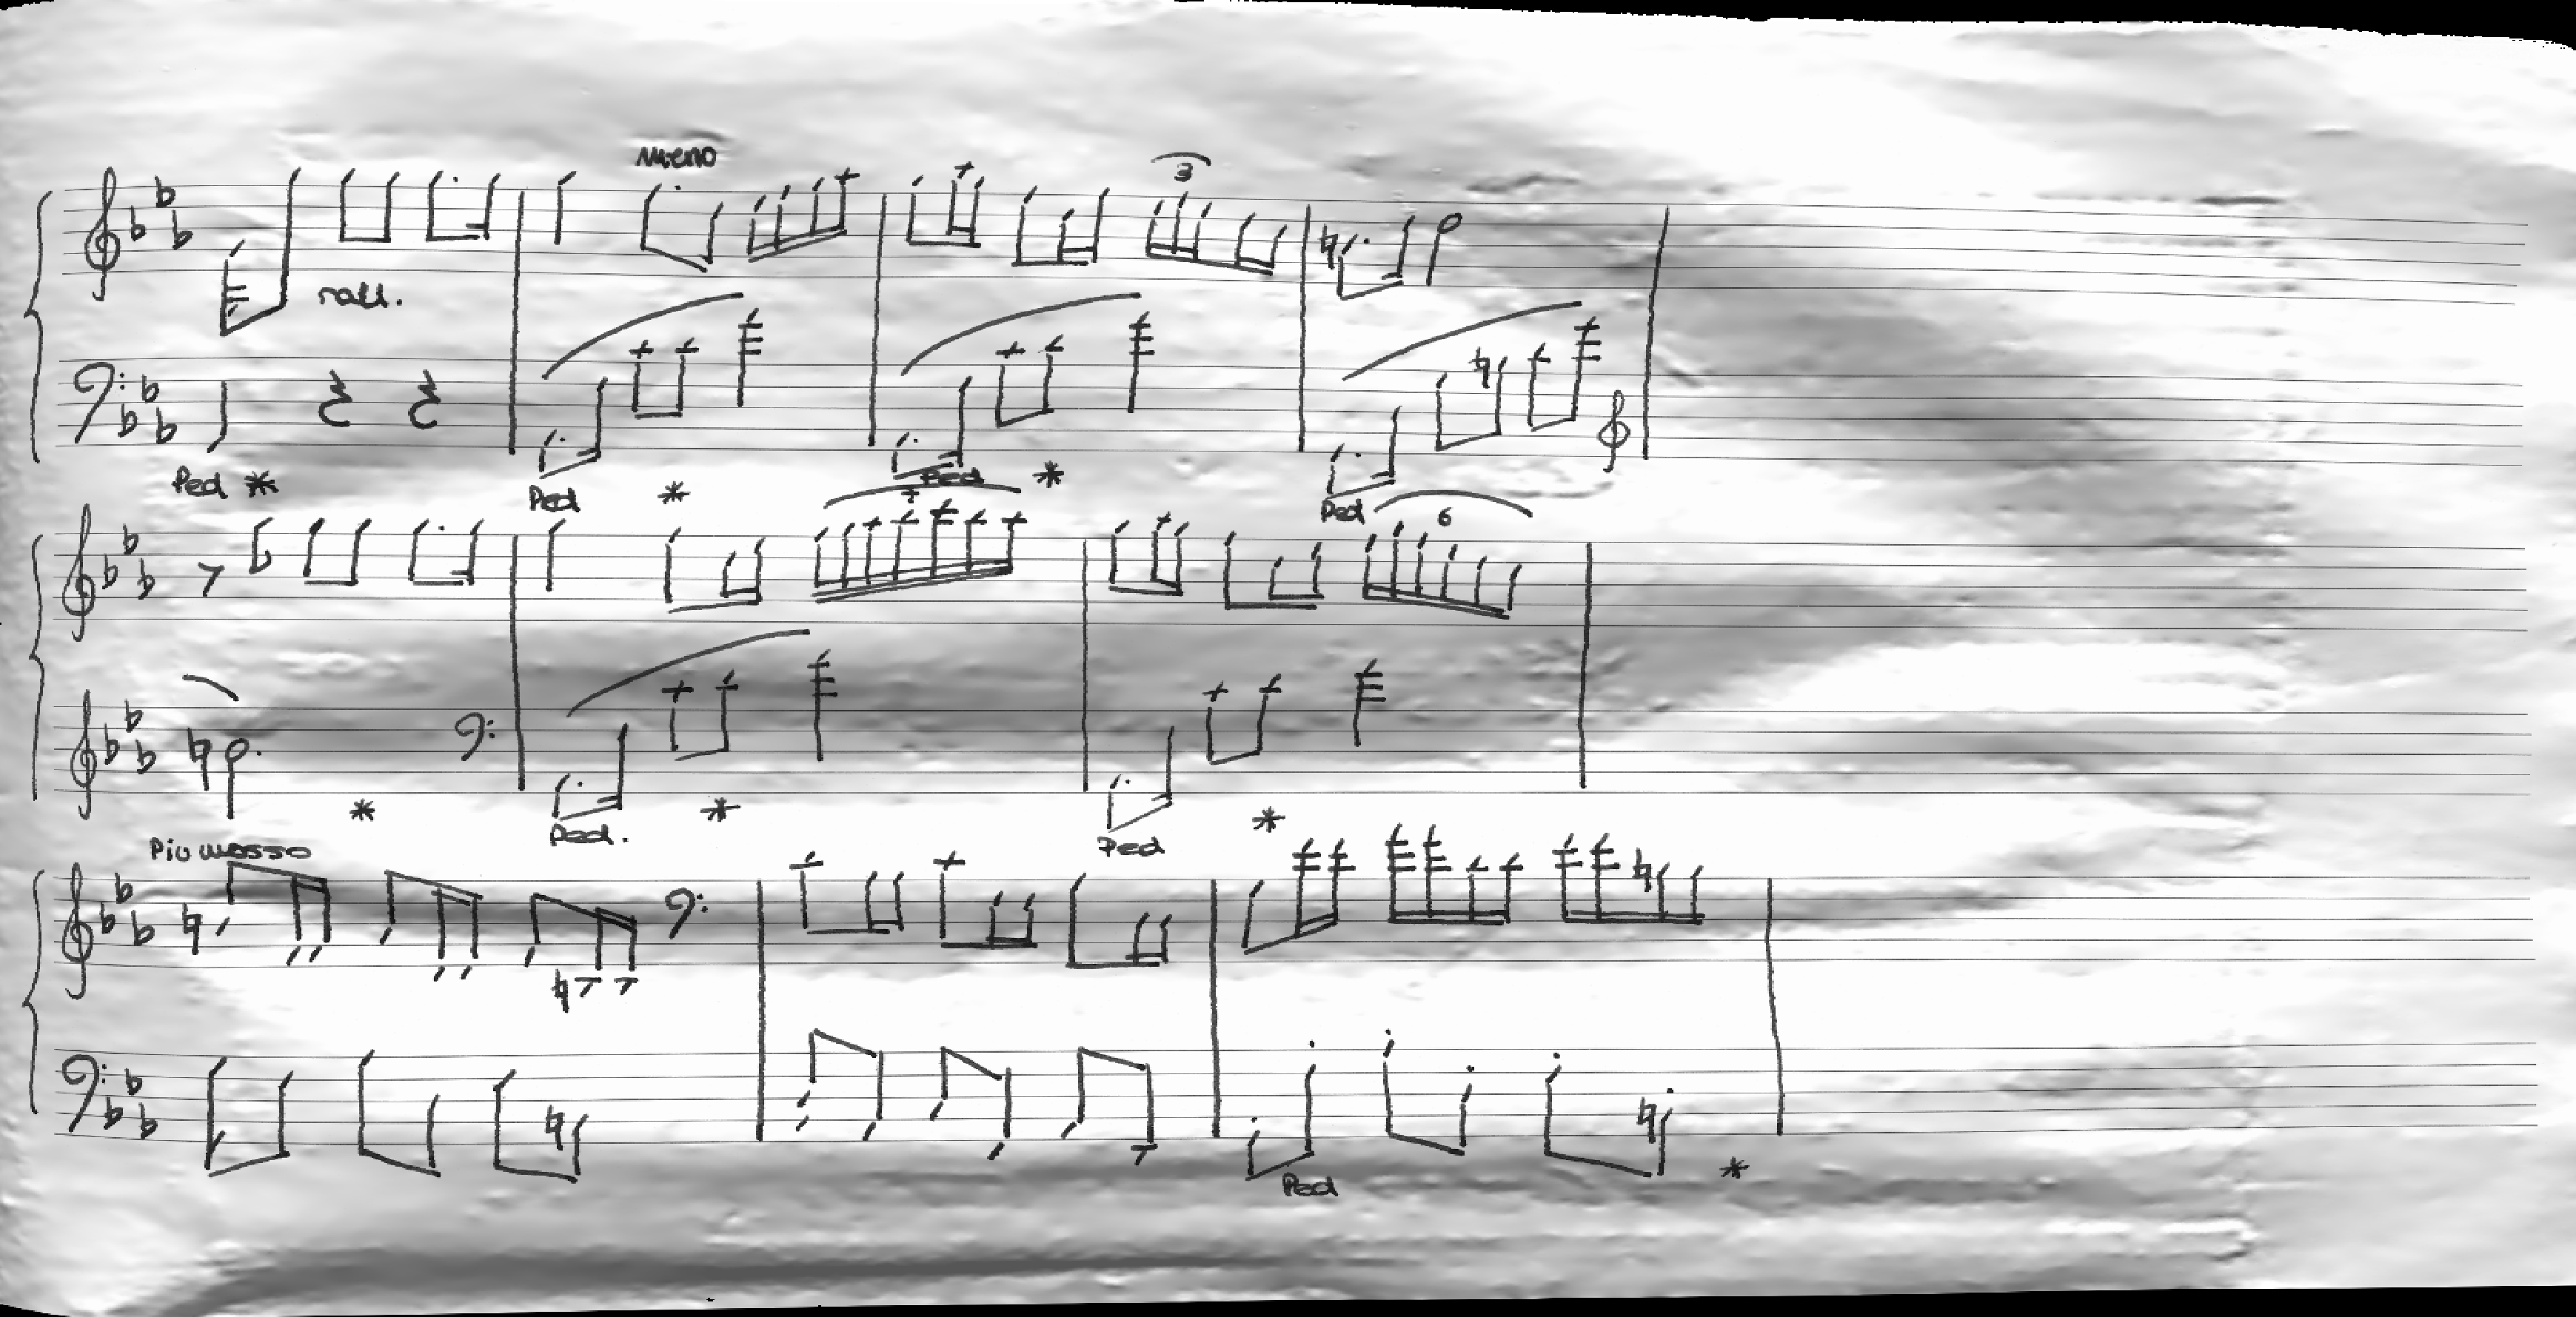 meno
3
rall.
Ped * Ped * Ped * Ped
7 6
* Ped. * Ped *
Più mosso
Ped *